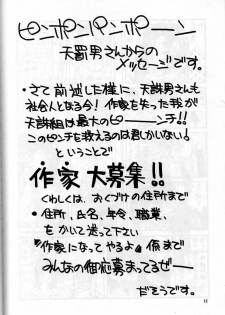 ピンポンパンポーン
天罰男さんからの
メッセージです。
・さて前述した様に、天誅男さんも
社会人となる今!作家を失った我が
天誅組は最大のピーーンチ!!
このピンチを救えるのは君しかいない!
ということで
作家大募集!!
くわしくは、おくづけの住所まで
・住所、氏名、年令、職業、
をかいて送って下さい
『作家になってやるよ』係まで
みんなの御応募まってるぜー
だそうです。